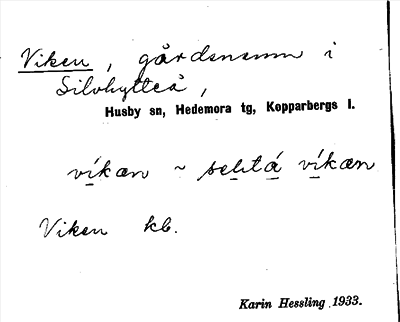 Viken, gårdsnamn i
Silvhytteå,
Husby sn, Hedemora tg, Kopparbergs l.
víkan ~ sehtá víkan
Viken kb.
Karin Hessling 1933.